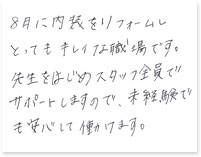 8月に内装をリフォームし
とってもキレイな職場です。
先生をはじめスタッフ全員で
サポートしますので、未経験でも
安心して働けます。